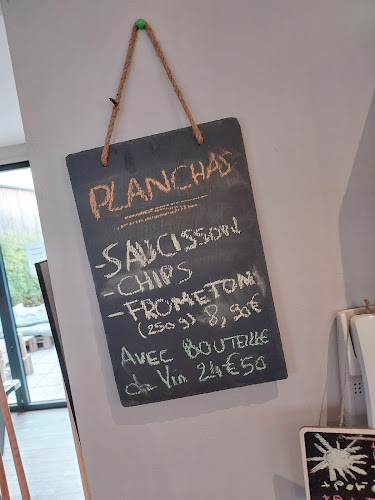 PLANCHAS
- SAUCISSON
- CHIPS
- FROMETON
(250 g) 8,90€
AVEC BOUTEILLE
de Vin 24€50